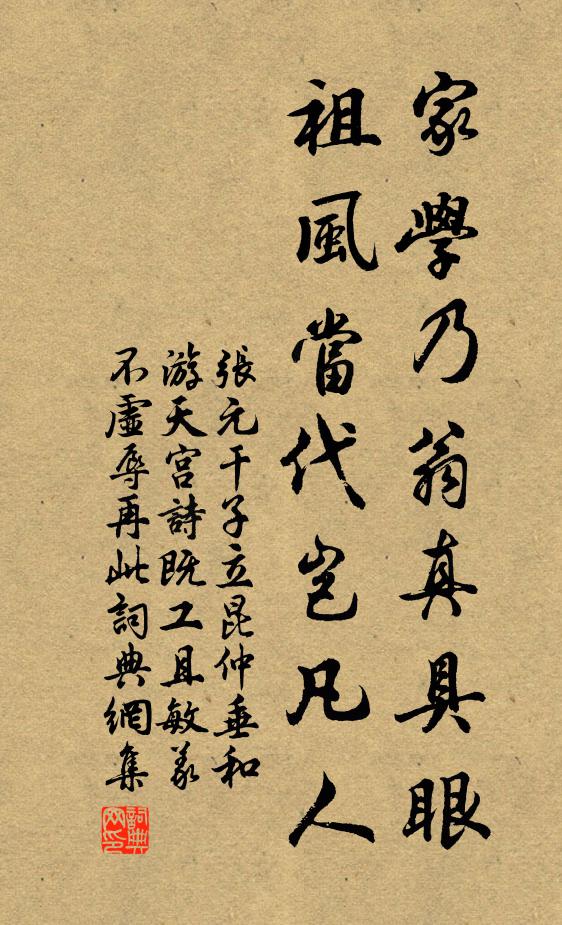 家學乃翁真具眼
祖風當代豈凡人
張元干子立昆仲垂和
游天宮詩既工且敏義
不虛辱再此詞典網集
詞典網印